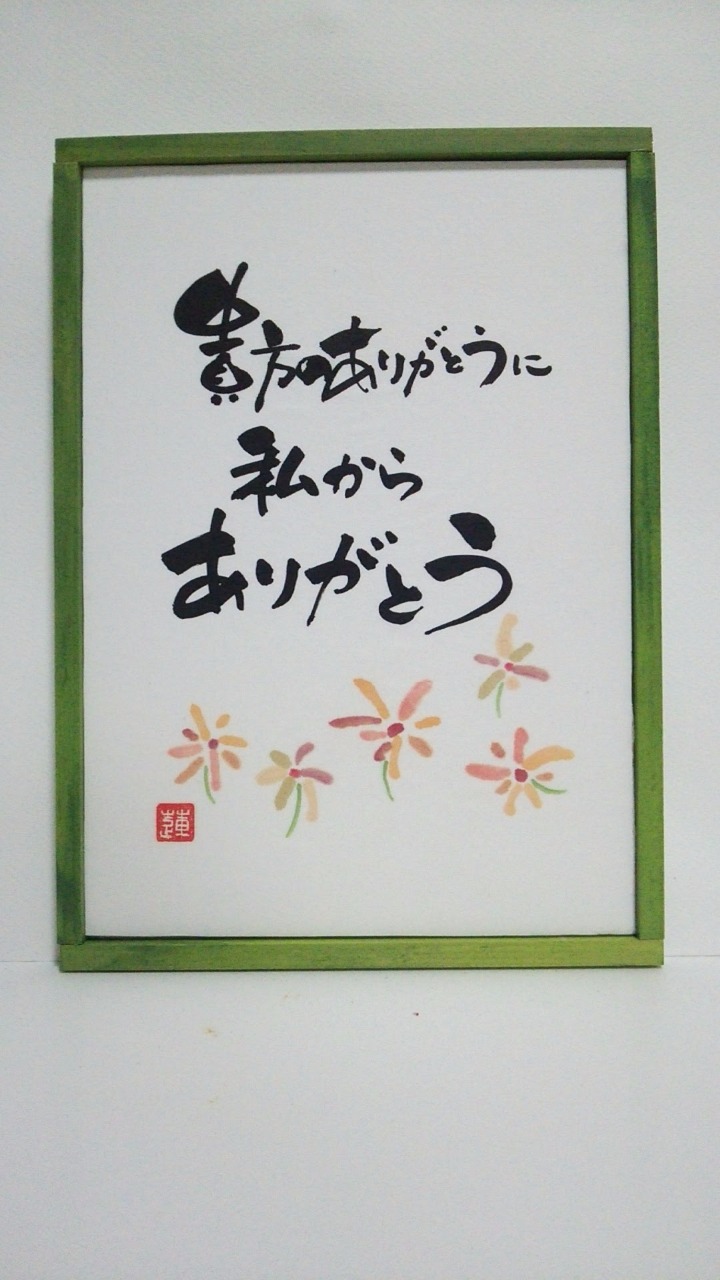 貴方のありがとうに
私から
ありがとう
蓮